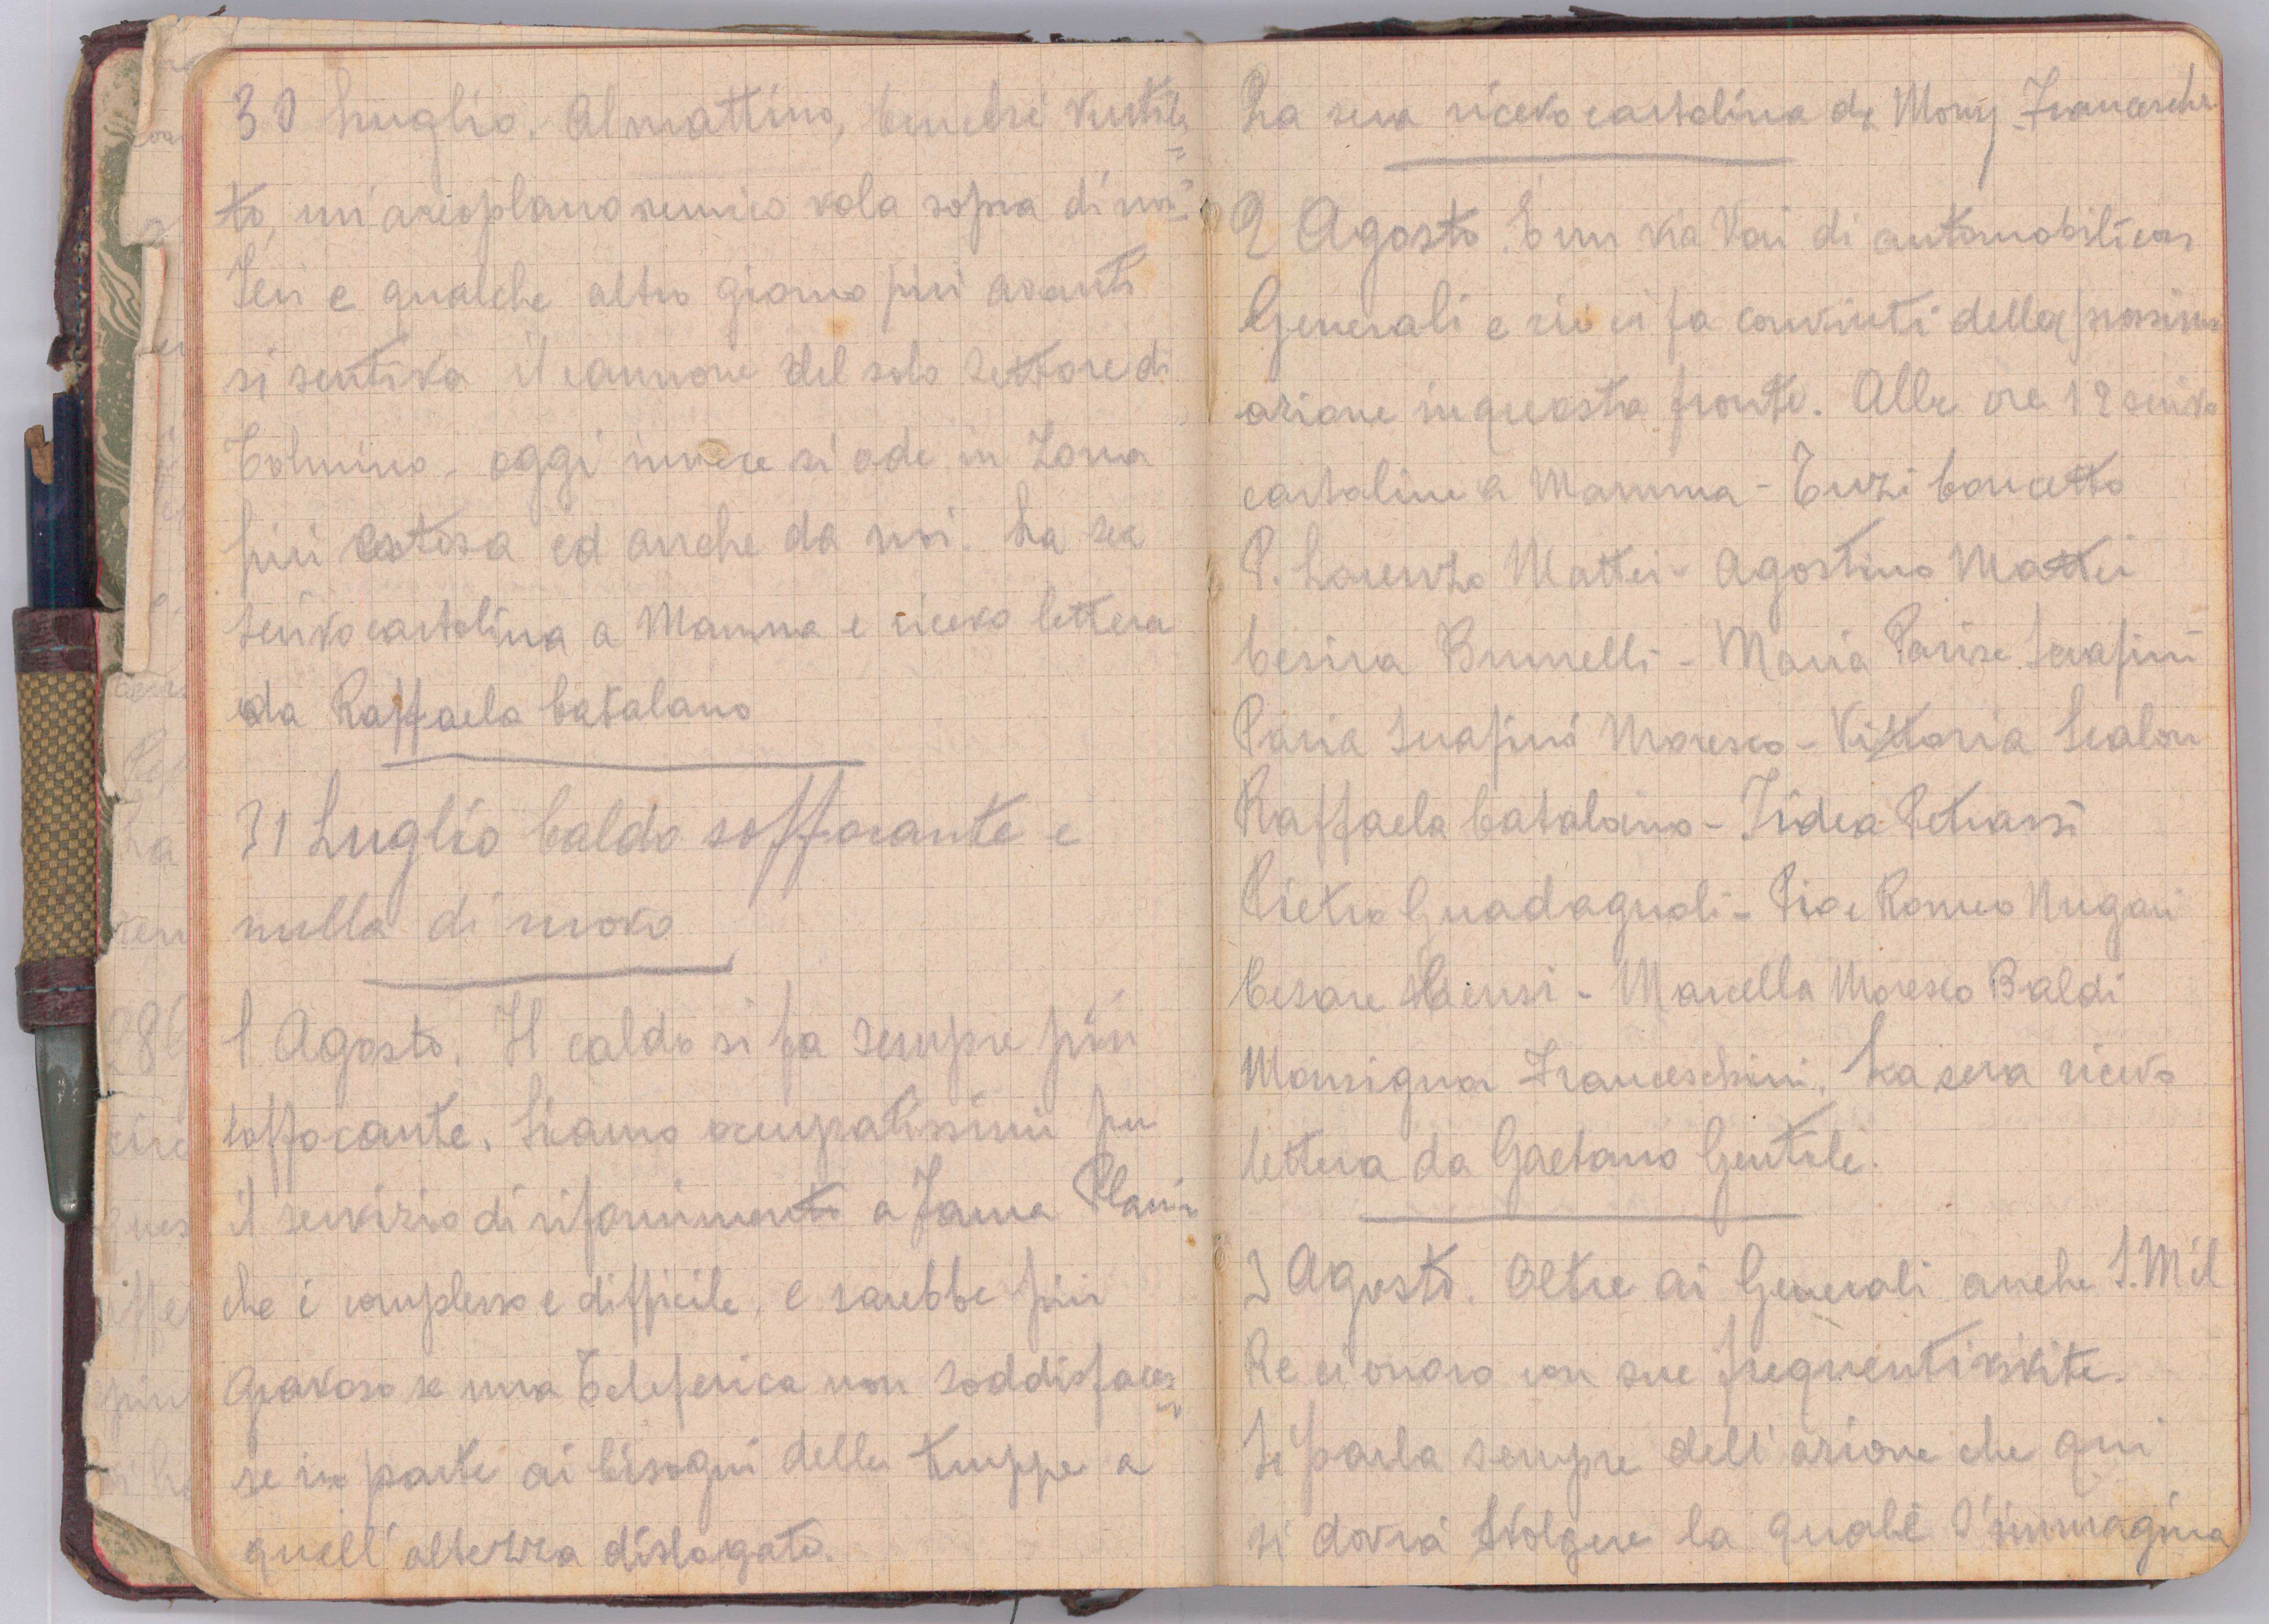 30 Luglio. Al mattino, benchè ventila=
to, un'areoplano nemico vola sopra di noi.
Ieri e qualche altro giorno più avanti
si sentiva il cannone del solo settore di
Tolmino - oggi invece si ode in Zona
più estesa ed anche da noi. La sera
scrivo cartolina a Mamma e ricevo lettera
da Raffaela Catalano
31 Luglio Caldo soffocante e
nulla di nuovo
1 Agosto. Il caldo si fa sempre più
soffocante. Siamo occupatissimi per
il servizio di rifornimento a Jama Planin
che è complesso e difficile, e sarebbe più
gravoso se una Teleferica non soddisfaces=
se in parte ai bisogni delle truppe a
quell'altezza dislogate.
La sera ricevo cartolina da Mons. Franceschi
2 Agosto. È un via Vai di automobili con
Generali e ciò ci fa convinti della prossima
azione in questa fronte. Alle ore 12 scrivo
cartoline a Mamma - Tuzi Concetto
P. Lorenzo Mattei - Agostino Mattei
Cesira Brunelli - Maria Parise Serafini
Paria Serafini Moresco - Vittoria Scalon
Raffaela Catalano - Iridea Petrassi
Pietro Guadagnoli - Pia e Romeo Nugari
Cesare Censi - Marcella Moresco Baldi
Monsignor Franceschini. La sera ricevo
lettera da Gaetano Gentile.
3 Agosto. Oltre ai Generali anche S. M il
Re ci onora con sue frequenti visite.
Si parla sempre dell'azione che qui
si dovrà svolgere la quale s'immagina